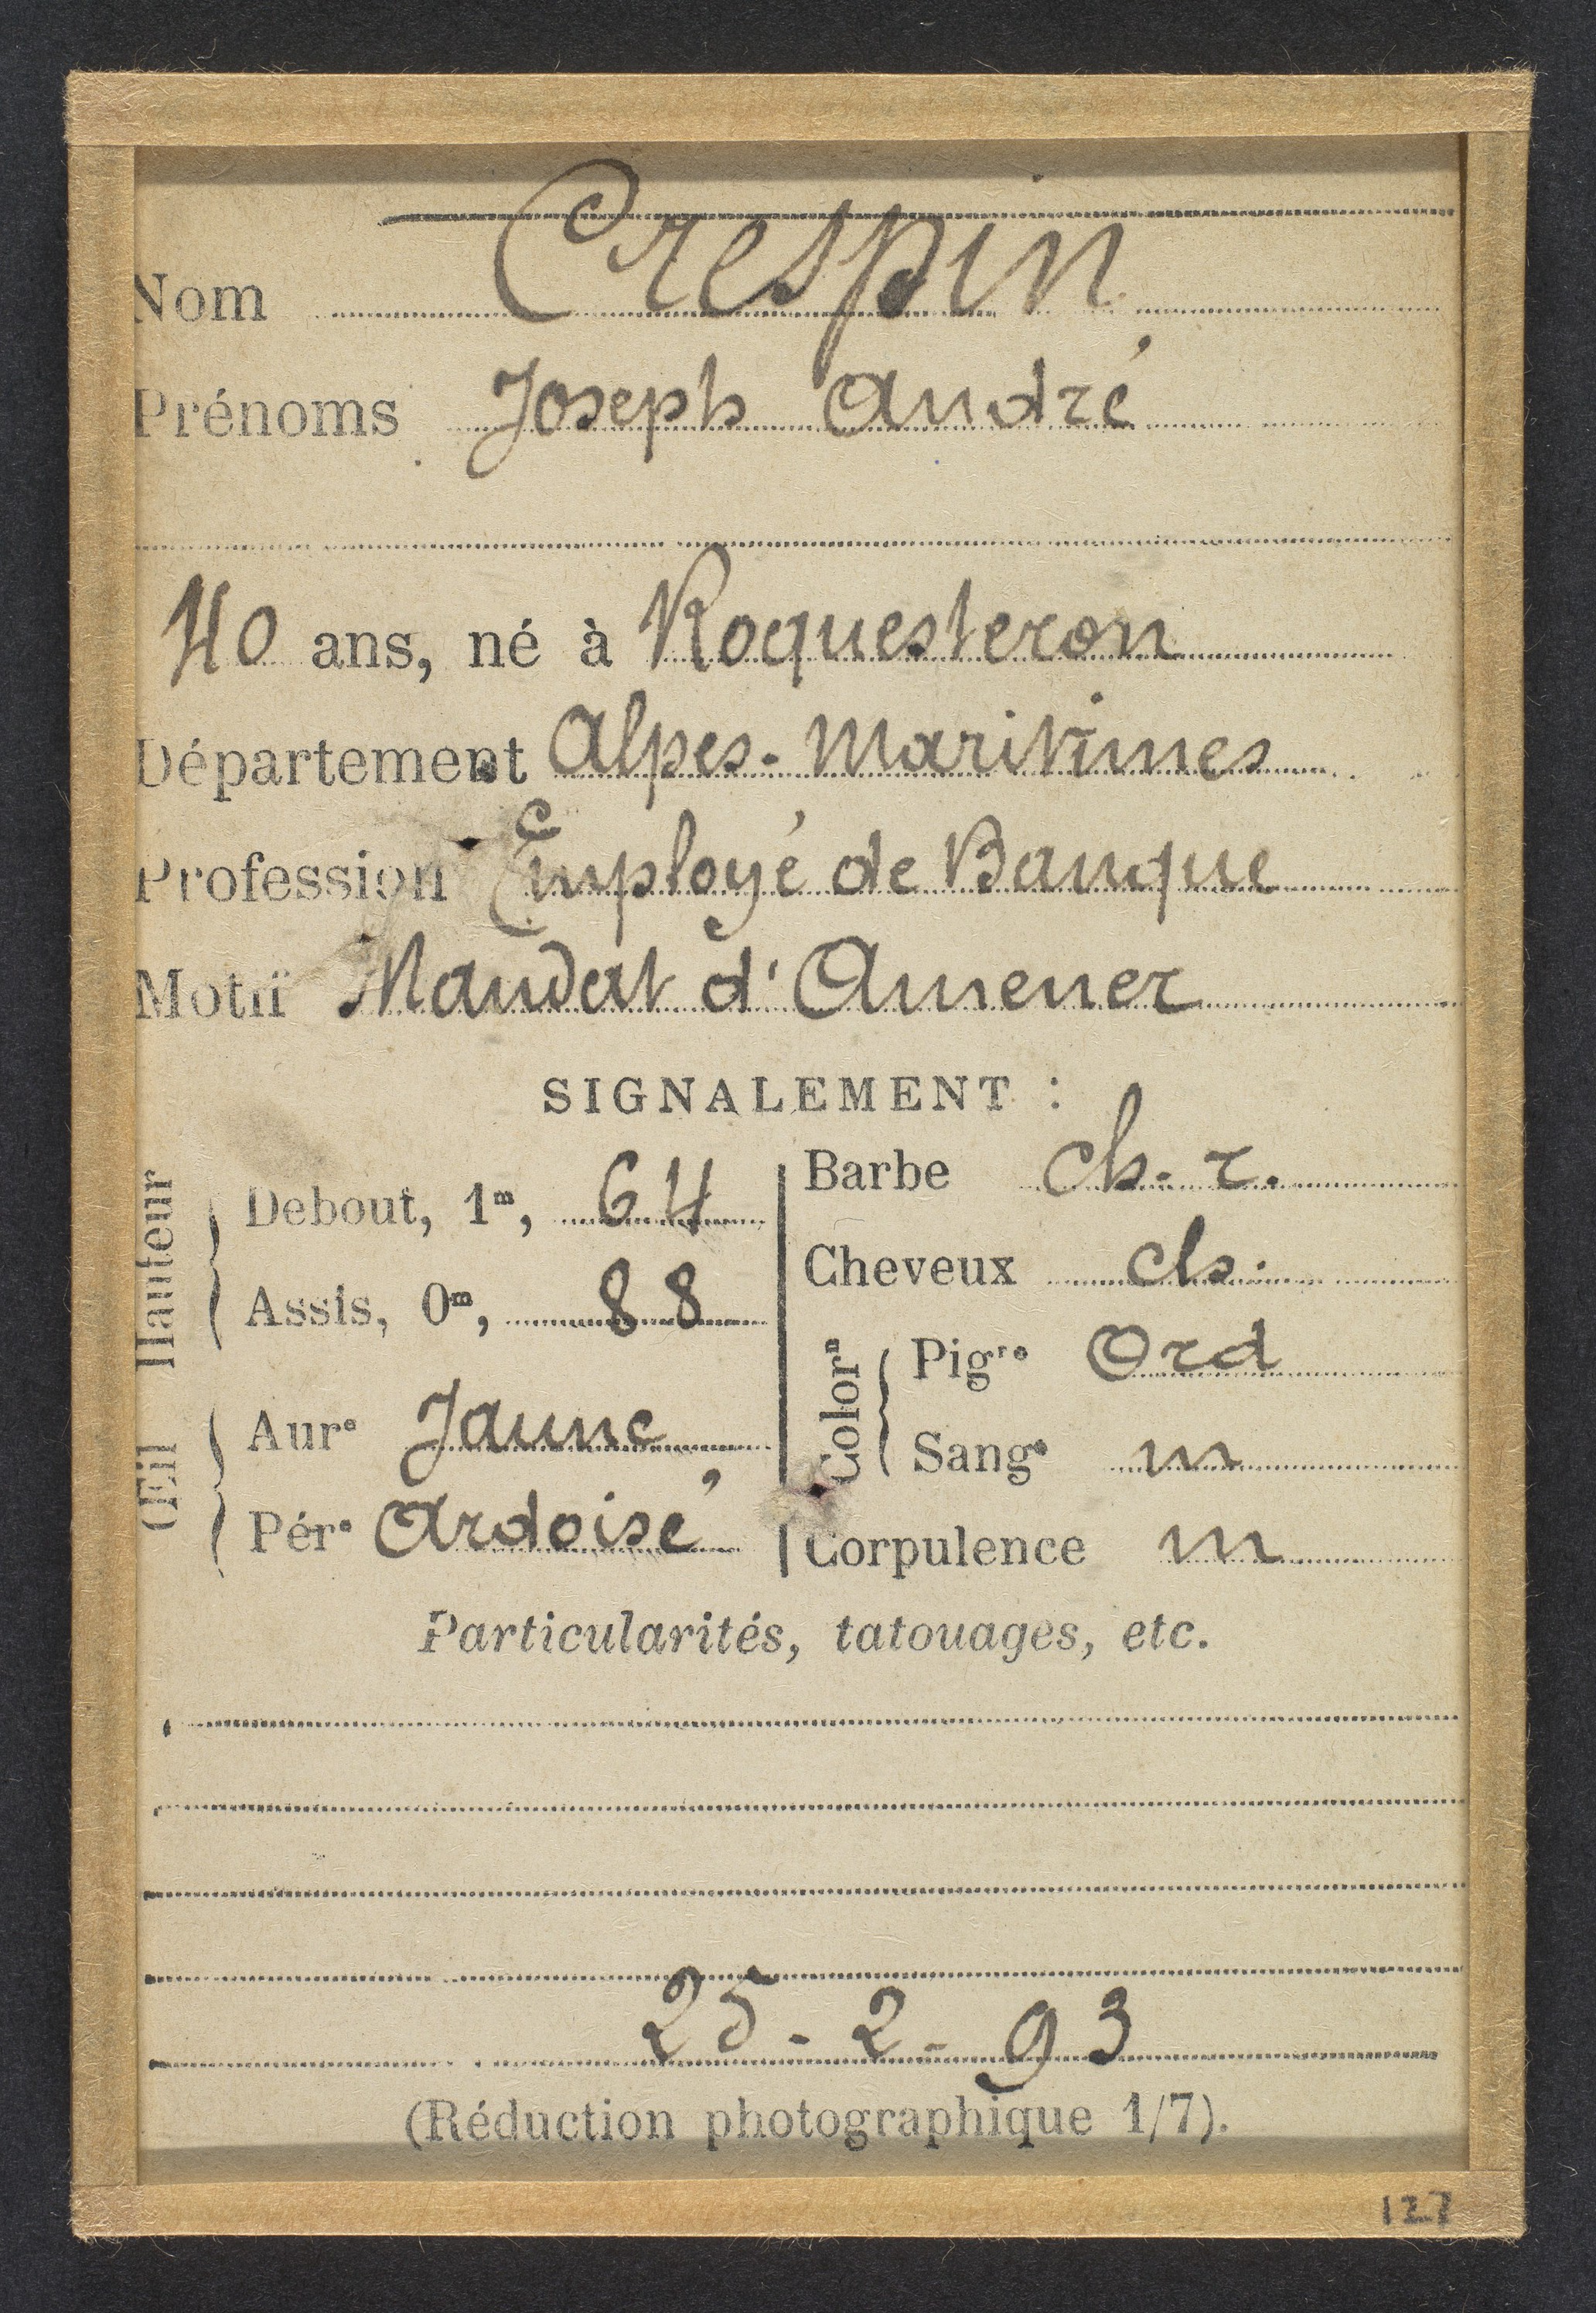 Nom Crespin
Prénoms Joseph André
40 ans, né à Roquesteron
Département Alpes-Maritimes
Profession Employé de Banque
Motif Mandat d'Amener
SIGNALEMENT :
Hauteur
Debout, 1m, 64
Assis, 0m, 88
Œil
Aure Jaune
Pére Ardoisé
Barbe ch. r.
Cheveux ch.
Colorn
Pigre Ord
Sange m
Corpulence m
Particularités, tatouages, etc.
25-2-93
(Réduction photographique 1/7).
127